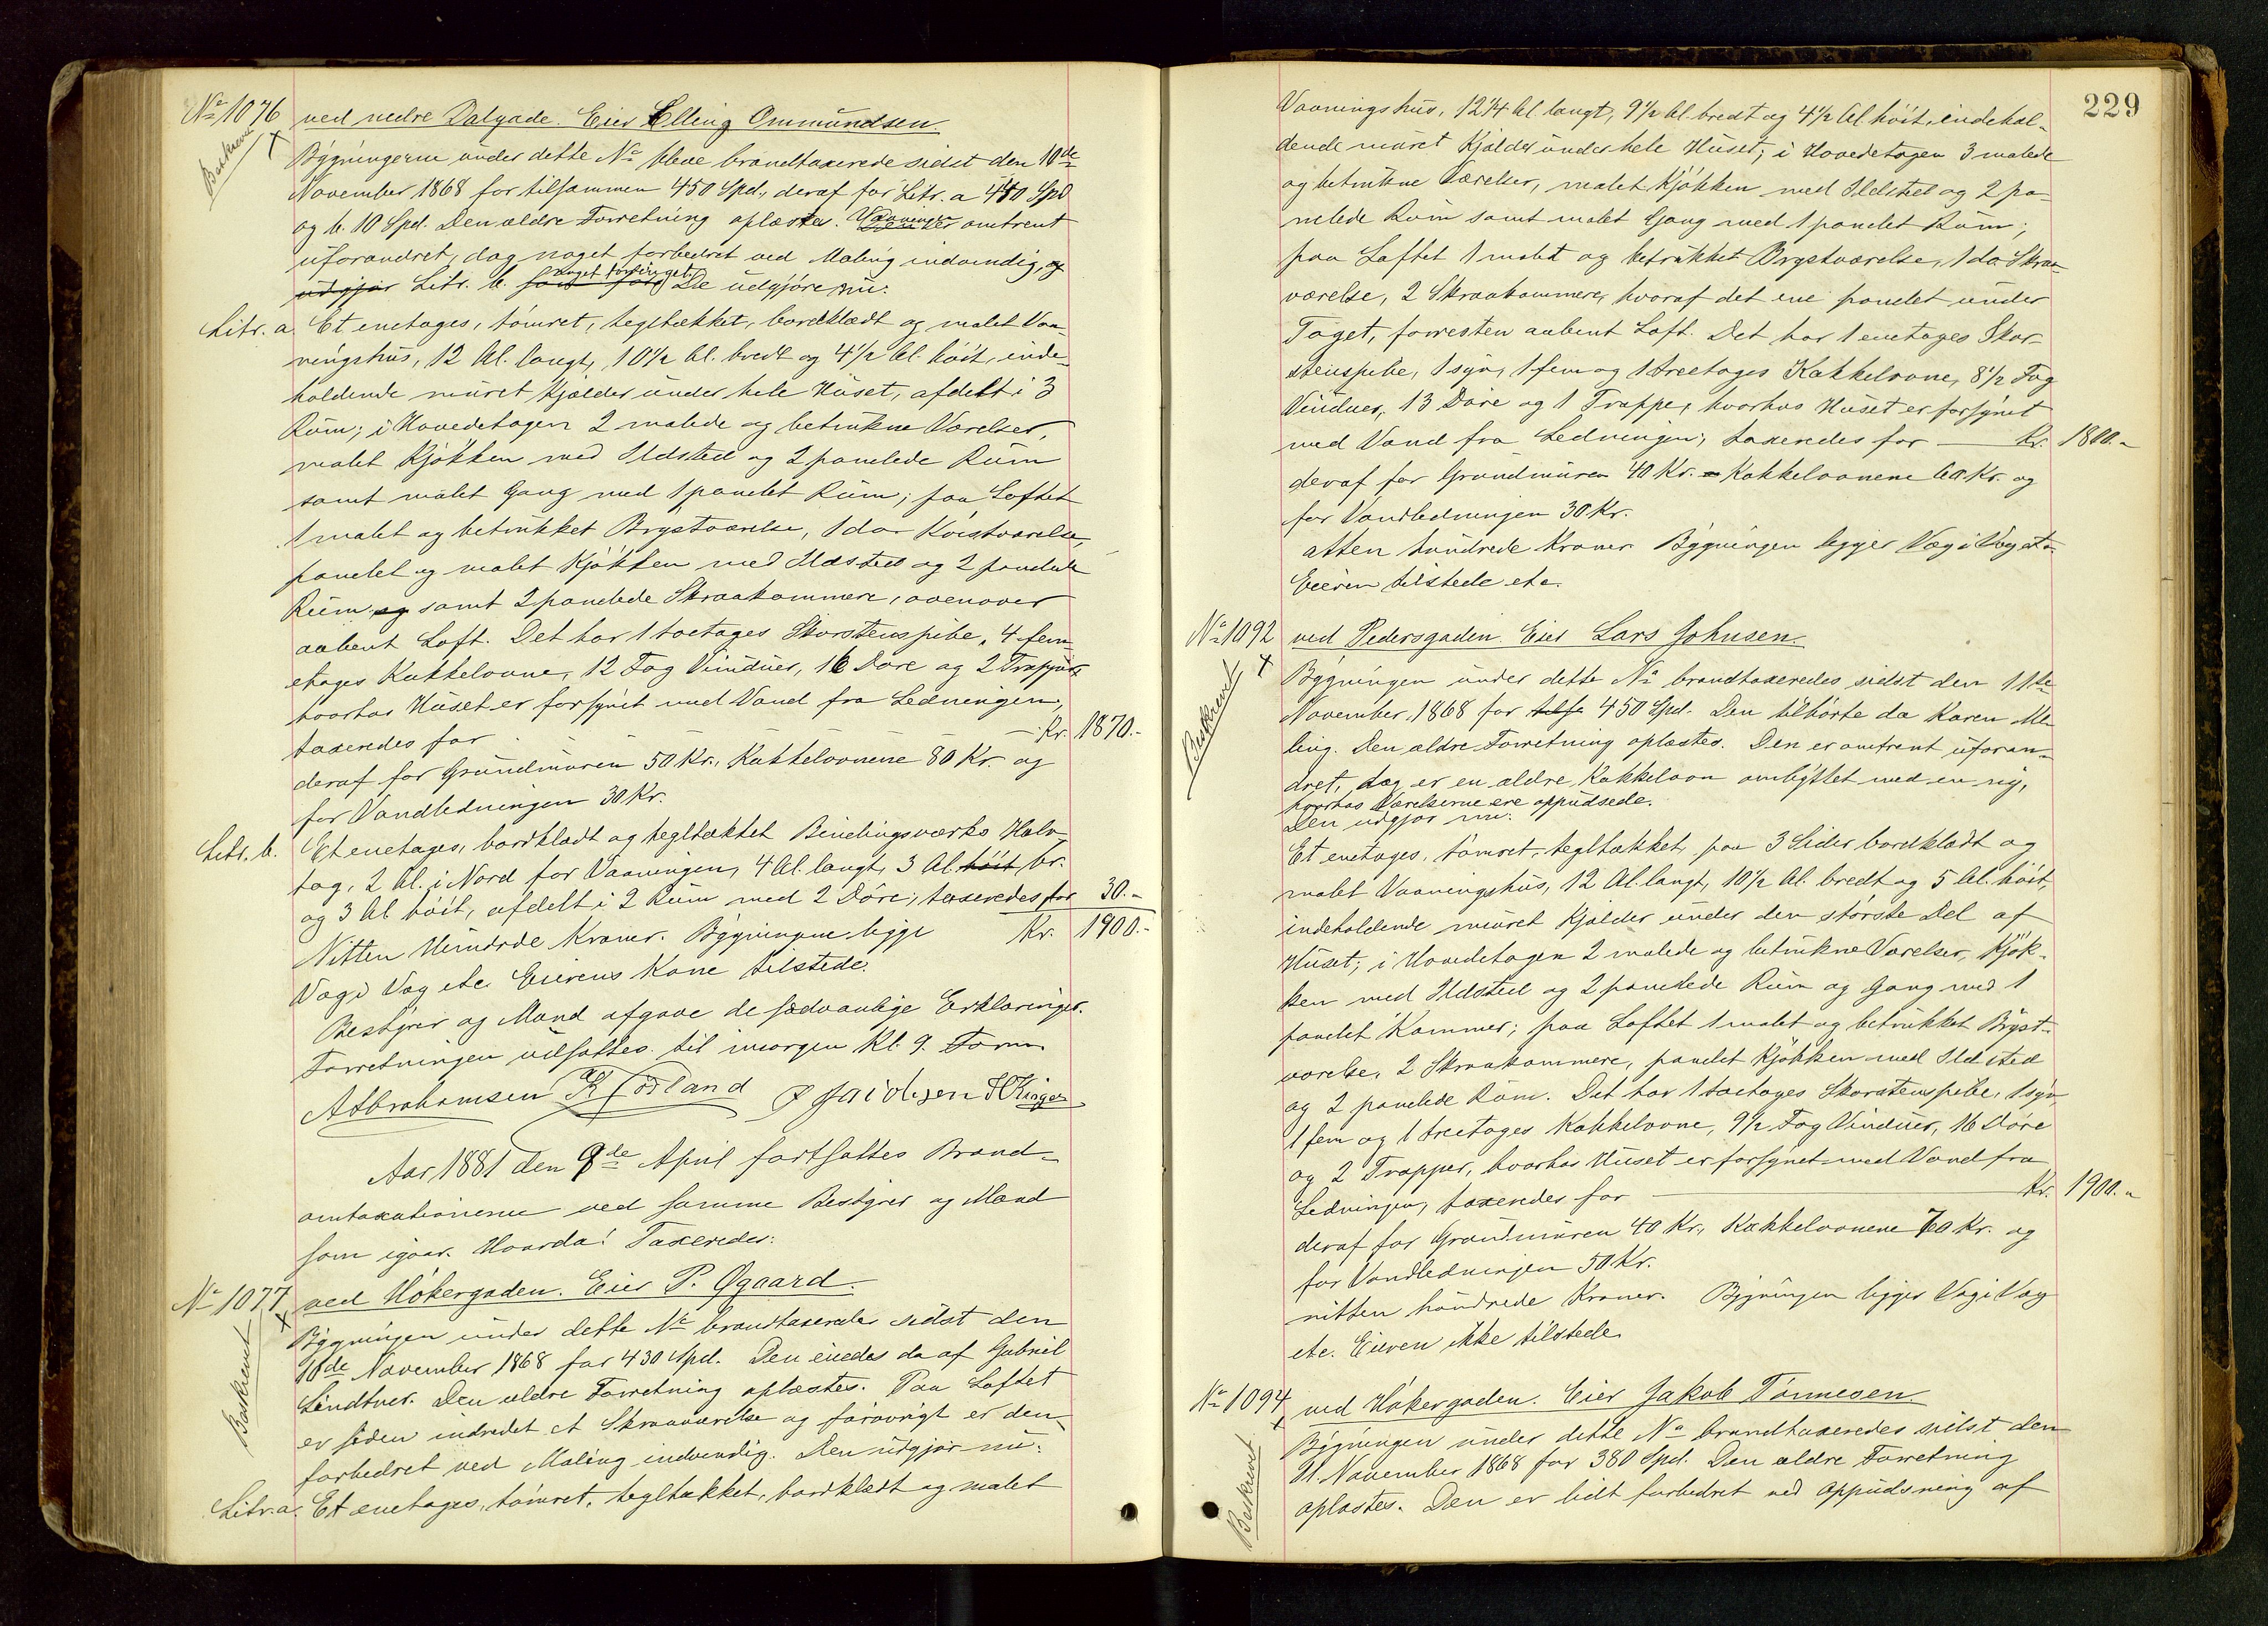 No 1076 ved nedre Dalgade. Eier Elling Ommundsen.
Beskrevet
Bygningerne under dette No bleve brandtaxerede sidst den 10de
November 1868 for tilsammen 450 Spd., deraf for Litr. a 440 Spd
og b. 10 Spd. Den ældre Forretning oplæstes. Vaaningen er omtrent
uforandret, dog noget forbedret ved Maling indvendig, og
udgjør Litr. b. noget forøget. De udgjøre nu:
Litr. a. Et enetages, tømret, tegltækket, bordklædt og malet Vaa-
ningshus, 12 Al. langt, 10 1/2 Al. bredt og 4 1/2 Al. høit, inde-
holdende muret Kjælder under hele Huset, afdelt i 3
Rum; i Hovedetagen 2 malede og betrukne Værelser,
malet Kjøkken med Ildsted og 2 panelede Rum
samt malet Gang med 1 panelet Rum; paa Loftet
1 malet og betrukket Brystværelse, 1 do Kvistværelse,
panelet og malet Kjøkken med Ildsted og 2 panelede
Rum og samt 2 panelede Skraakammere, ovenover
aabent Loft. Det har 1 toetages Skorstenspibe, 4 fem-
etages Kakkelovne, 12 Fag Vinduer, 16 Døre og 2 Trapper,
hvorhos Huset er forsynet med Vand fra Ledningen,
taxeredes for — Kr. 1870.-
deraf for Grundmuren 50 Kr., Kakkelovnene 80 Kr. og
for Vandledningen 30 Kr.
Litr. b. Et enetages, bordklædt og tegltækket Bindingsværks Halv-
tag, 2 Al. i Nord for Vaaningen, 4 Al. langt, 3 Al. høit br.
og 3 Al høit, afdelt i 2 Rum med 2 Døre; taxeredes for 30.-
Nitten Hundrede Kroner. Bygningerne ligge Kr. 1900.-
Væg i Væg etc Eierens Kone tilstede.
Bestyrer og Mænd afgave de sædvanlige Erklæringer.
Forretningen udsattes til imorgen Kl. 9. Form
A Abrahamsen Jacobsen
Aar 1881 den 9de April fortsattes Brand-
omtaxationerne ved samme Bestyrer og Mænd
som igaar. Hvorda! Taxeredes:
No 1077 ved Høkergaden. Eier P. Øgaard.
Beskrevet
Bygningen under dette No brandtaxeredes sidst den
10de November 1868 for 430 Spd. Den eiedes da af Gabriel
Lindtner. Den ældre Forretning oplæstes. Paa Loftet
er siden indredet et Skraaværelse og forøvrigt er den
forbedret ved Maling indvendig. Den udgjør nu:
Litr. a. Et enetages, tømret, tegltækket, bordklædt og malet
229
Vaaningshus, 12 1/4 Al. langt, 9 1/2 Al. bredt og 4 1/2 Al. høit, indehol-
dende muret Kjælder under hele Huset; i Hovedetagen 3 malede
og betrukne Værelser, malet Kjøkken med Ildsted og 2 pa-
nelede Rum samt malet Gang med 1 panelet Rum;
paa Loftet 1 malet og betrukket Brystværelse, 1 do Skraa-
værelse, 2 Skraakammere, hvoraf det ene panelet under
Taget, forresten aabent Loft. Det har 1 enetages Skor-
stenspibe, 1 syv, 1 fem og 1 treetages Kakkelovne, 8 1/2 Fag
Vinduer, 13 Døre og 1 Trappe, hvorhos Huset er forsynet
med Vand fra Ledningen; taxeredes for — Kr. 1800.-
deraf for Grundmuren 40 Kr. Kakkelovnene 60 Kr. og
for Vandledningen 30 Kr.
atten hundrede Kroner. Bygningen ligger Væg i Væg etc
Eieren tilstede etc.
No 1092 ved Pedersgaden. Eier Lars Johnsen.
Beskrevet
Bygningen under dette No brandtaxeredes sidst den 11te
November 1868 for tilsa 450 Spd. Den tilhørte da Karen Me-
ling. Den ældre Forretning oplæstes. Den er omtrent uforan-
dret, dog er en ældre Kakkelovn ombyttet med en ny,
hvorhos Værelserne ere oppudsede.
Den udgjør nu:
Et enetages, tømret, tegltækket, paa 3 Sider bordklædt og
malet Vaaningshus, 12 Al. langt, 10 1/2 Al. bredt og 5 Al. høit,
indeholdende muret Kjælder under den største Del af
Huset; i Hovedetagen 2 malede og betrukne Værelser, Kjøk-
ken med Ildsted og 2 panelede Rum og Gang med 1
panelet Kammer; paa Loftet 1 malet og betrukket Bryst-
værelse, 2 Skraakammere, panelet Kjøkken med Ildsted
og 2 panelede Rum. Det har 1 toetages Skorstenspibe, 1 syv,
1 fem og 1 treetages Kakkelovne, 9 1/2 Fag Vinduer, 16 Døre
og 2 Trapper, hvorhos Huset er forsynet med Vand fra
Ledningen, taxeredes for — Kr. 1900.-
deraf for Grundmuren 40 Kr., Kakkelovnene 70 Kr. og
for Vandledningen 50 Kr.
nitten hundrede Kroner. Bygningen ligger Væg i Væg
etc. Eieren ikke tilstede.
No 1094 ved Høkergaden. Eier Jakob Tønnesen.
Beskrevet
Bygningen under dette No brandtaxeredes sidst den
11. November 1868 for 380 Spd. Den ældre Forretning
oplæstes. Den er lidt forbedret ved Oppudsning af